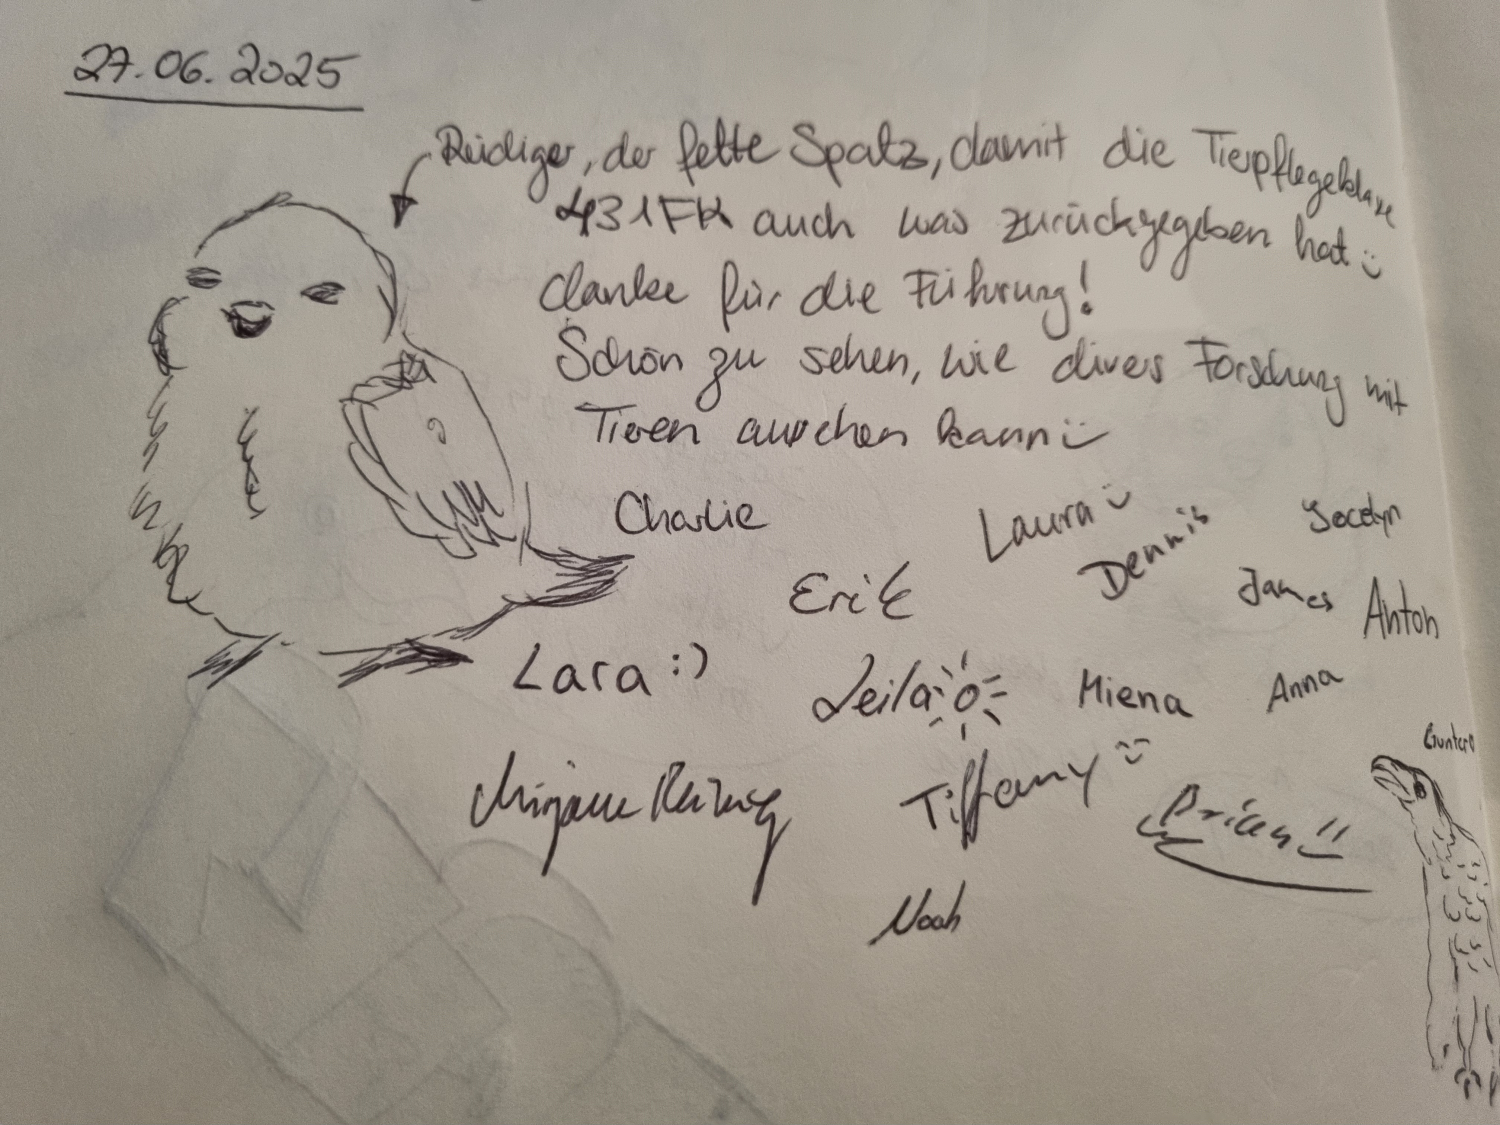 27.06.2025
Rüdiger, der fette Spatz, damit die Tierpflegeklasse
431FK auch was zurückgegeben hat :)
danke für die Führung!
Schön zu sehen, wie divers Forschung mit
Tieren aussehen kann :)
Charlie
Laura :)
Dennis
Jocelyn
Erik
James
Anton
Lara :)
Leila
Miena
Anna
Tiffany :)
Brian :)
Noah